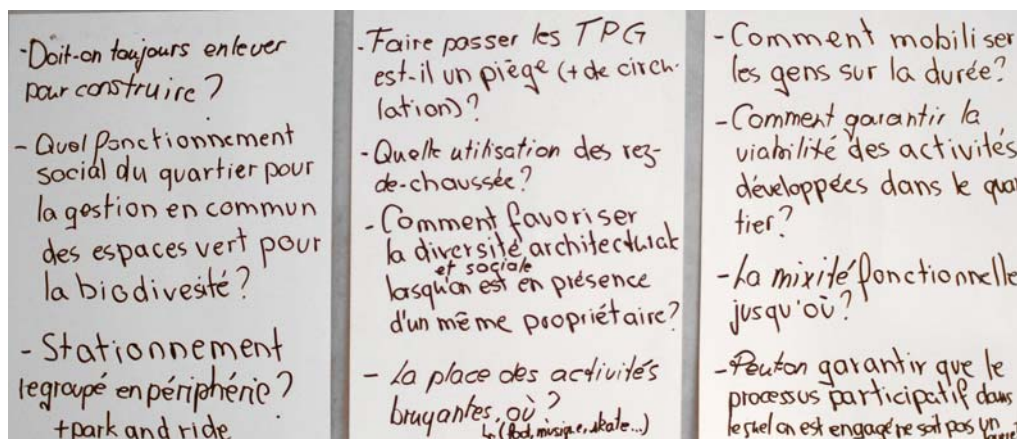 - Doit-on toujours enlever
pour construire ?
- Quel fonctionnement
social du quartier pour
la gestion en commun
des espaces vert pour
la biodivesité ?
- Stationnement
regroupé en périphérie ?
+ park and ride
- Faire passer les TPG
est-il un piège (+ de circu-
lation) ?
- Quelle utilisation des rez-
de-chaussée ?
- Comment favoriser
la diversité architecturale
et sociale
lorsqu'on est en présence
d'un même propriétaire ?
- La place des activités
bruyantes, où ?
(foot, musique, skate...)
- Comment mobiliser
les gens sur la durée ?
- Comment garantir la
viabilité des activités
développées dans le quar
tier ?
- La mixité fonctionnelle
jusqu'où ?
- Peut on garantir que le
processus participatif dans
lequel on est engagé ne soit pas un